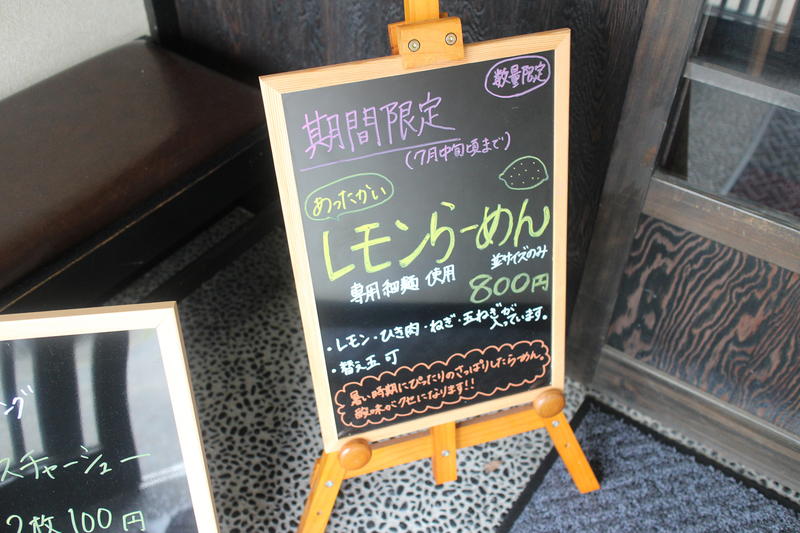 数量限定
期間限定
(7月中旬頃まで)
あったかい
レモンらーめん
並サイズのみ
専用細麺 使用
800円
・レモン・ひき肉・ねぎ・玉ねぎが
入っています。
・替え玉 可
暑い時期にぴったりのさっぱりしたらーめん。
酸味がクセになります!!
ング
スチャーシュー
2枚100円